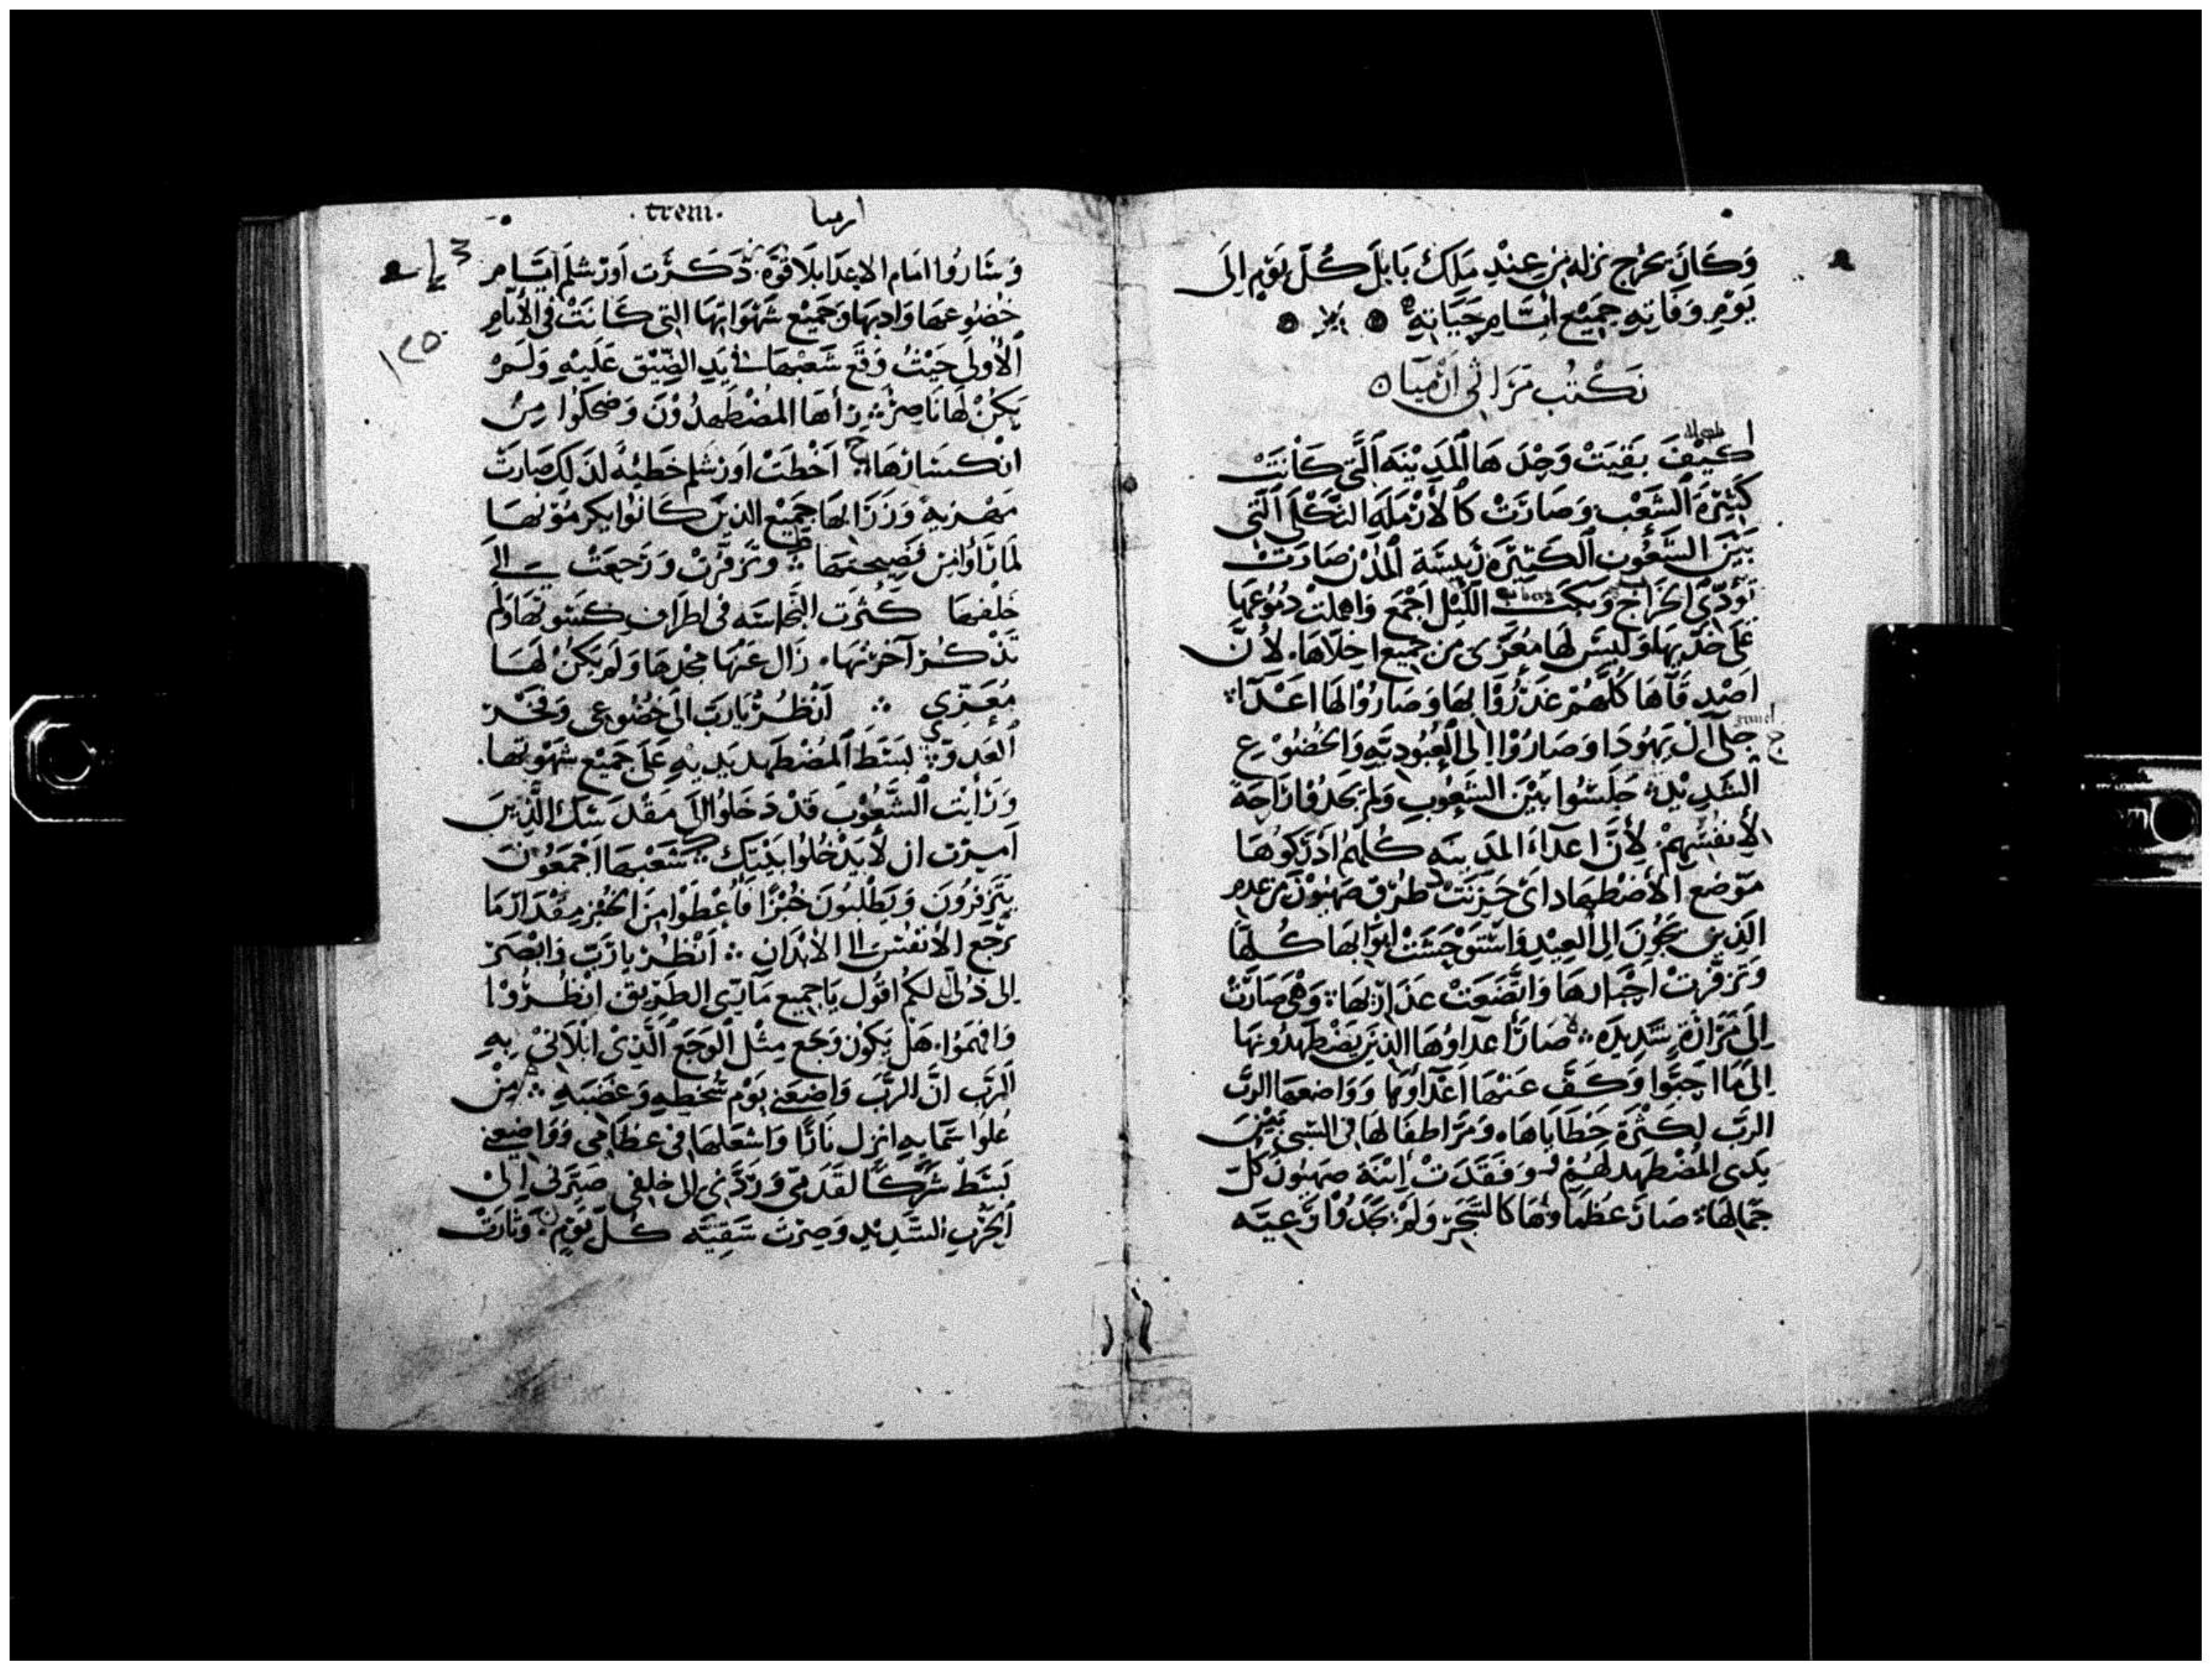 وَكَانَ يخرج نزله مِن عِنْدِ مَلِك بَابلَ كُلّ يَوْمٍ اِلَى
يَوْمِ وَفَاتِهِ جَمِيْع أيَّامِ حَيَاتِهِ
نَكْتُب مَرَاثي ارْميَا
ا كَيْفَ بَقِيَتْ وَحِدَهَا المَدِيْنَه الَّتي كَانَتْ
كَثِيْرَة الشَّعْب وَصَارَتْ كَالأَرْمَلَه الثَكْلَى الَّتي
بَيْنَ الشُّعُوْب الكَثِيْرَه رَئِيسَة المُدُن صَارَتْ
تُؤدِّي الخَرَاج وَبَكَت اللَيْل اجْمَع وَاهملتْ دمُوْعهَا
عَلَى خدّيهَا وَلَيْسَ لهَا مُعَزّى مِن جَمِيْع اخِلّاهَا لأنّ
اصْدِقَآهَا كُلّهُمْ غَدَرُوْا بهَا وَصَارُوْا لهَا اعْدَآ
ج جلى آل يَهُودَا وَصَارُوْا اِلى العُبُودِيّه وَالخضُوْع
الشَدِيْد جَلَسُوا بَيْنَ الشُعُوْبِ وَلَم يَجدُوا رَاحَة
لأنفُسِهِمْ لأنَّ اعدَآء المَدِينه كُلّهُم ادْرَكُوهَا
مَوْضع الأضْطِهَاد اى حَزِنَتْ طُرُق صَهيُوْن مِن عدم
الَّذِين يَجُوْنَ اِلى العِيْد وَاسْتَوْحَشَتْ ابوَابهَا كُلهَا
وَتزفَّرتْ احْبَارهَا وَاتَّضَعَتْ عَذَارِيهَا وَهِي صَارَتْ
اِلَى مَرَارَة شَدِيدَه صَارَ أعدَاوُهَا الذِيْنَ يَضْطَهِدُونهَا
اِلى مَا احَبّوا وَكَفَّ عَنْهَا اعْدَاوُهَا وَوَاضعهَا الربّ
الربّ لِكَثْرَة خَطَايَاهَا وَمَرّ اطفَالهَا في السَّبى بَيْنَ
يَدَى المُضْطَهِد لَهُمْ وَفَقَدَتْ اِبْنَة صهيُون كلّ
جَمَالهَا صَارَ عُظَمَاوُهَا كَا وَلَمْ يَجَدُوا رَعِيَّه
. trem. ارميا
وَسَارُوا امَام الاعدَا بلَا قوَّة ذَكَرَت اَورْشلم ايَّام
خُضُوعهَا وَادبهَا وَجَمِيْع شَهْوَاتهَا التي كَانَتْ في الأيّامِ
الأُولَى حَيْثُ وَقَع شَعْبهَا في يَدِ الضِّيْق عَلَيْهِ وَلَمْ
يَكُنْ لَهَا نَاصِرٌ رأهَا المُضْطَهِدُوْنَ وَضحكُوْا مِن
انْكسَارهَا اَخْطَتْ اَورشلم خَطيئَةً لذَلكَ صَارَتْ
مهْزيه وَزرَا بهَا جَمِيْع الذِينَ كَانُوْا يكرمُوْنهَا
لَمَا رَأَوْا مِن فضِيحتهَا وَتزفَّرتْ وَرَجعَتْ الى
خلفهَا كثُرَت النَجَاسَه في اطرَاف كسْوتهَا وَلَم
تَذْكُرْ آخرتهَا زَال عَنْهَا مجْدهَا وَلَم يَكُنْ لهَا
مُعَزّي اَنْظُرْ يَارَبّ اِلَى خُضُوْعي وَفَخْر
العَدوّ بَسَطَ المُضْطهِد يَدِيْهِ عَلَى جَمِيْع شَهْوَتهَا
وَرَأَيْت الشُّعُوْبَ قَدْ دَخَلُوا اِلَى مَقْدِسِكَ الَّذِينَ
اَمرْت ان لَا يَدْخُلُوا بَيْتِكَ شَعْبهَا اَجْمَعُوْنَ
يَتَزفرُونَ وَيَطْلبُونَ خُبْزًا فَأُعْطَوْا مِنَ الخُبْز مِقْدَار مَا
تَرْجَع الأنفُسَ الى الأَبدَانِ اَنْظُرْ يَا رَبّ وَابْصَرْ
اِلى ذلى لكم اقُول يَا جَمِيع مَآرّي الطَرِيق انْظُرُوْا
وَافهَمُوْا هَل يَكُوْن وَجَع مِثْل الوَجَع الَّذِىْ ابْلَاني بهِ
الرَّب انَّ الرَّب وَاضِعَني يَوْمِ سُخطِهِ وَغضبَه مِن
عُلوّ سَمَايهِ انزل نَارًا وَاشعَلهَا في عظَامِي وَوَاضِعني
بَسَطَ شَرَكًا لقَدَمَيّ وَردَّني الى خلفي صيّرَني اِلى
الخرَب الشَدِيْد وَصِرْتُ شَقِيّه كُلّ يَوْمٍ وَثَارَتْ
١٢٥